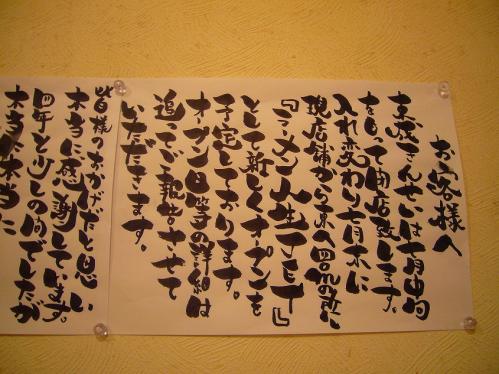 お客様へ
をもって閉店致します。
入れ変わり七月末に
現店舗から東へ
『ラーメン人生JET』
として新しくオープンを
予定しております。
オープン日等の詳細は
追ってご報告させて
いただきます。
皆様のおかげだと思い
本当に感謝しています。
四年と少しの間でしたが
本当に本当に